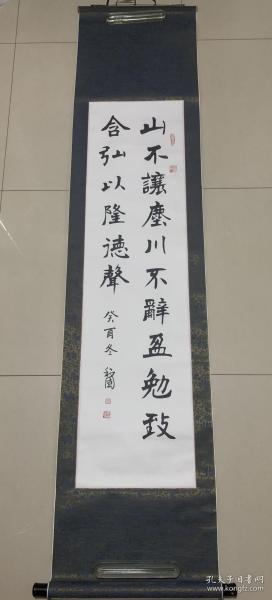 山不讓塵川不辭盈勉致
含弘以隆德聲
癸酉冬
孔夫子旧书网
www.kongfz.com